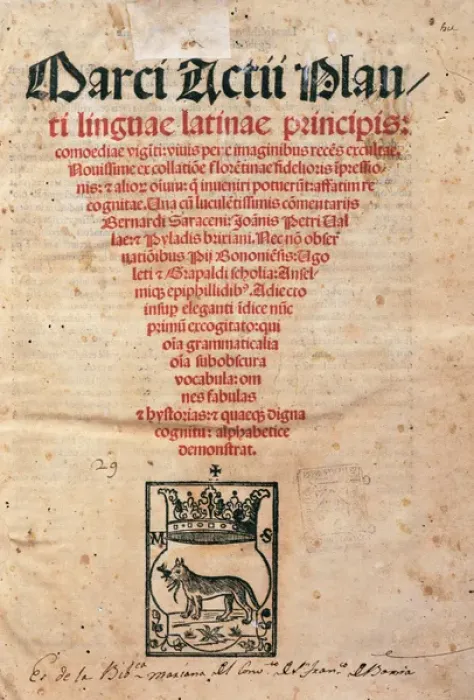 Marci Actii Plau/
ti linguae latinae principis:
comoediae vigiti: viuis pene imaginibus recēs excultae.
Nouissime ex collatiōe florētinae fidelioris īpressio-
nis: & alioꝝ oīuꝫ: q̄ inueniri potuerūt: affatim re
cognitae. Una cū luculētissimis cōmentarijs
Bernardi Saraceni: Joānis Petri Val
lae: & Pyladis brixiani. Nec nō obser
uationibus Pij Bononiēsis: Ugo
leti & Grapaldi scholia: Ansel-
miqꝫ epiphillidibꝰ. Adiecto
insuꝑ eleganti īdice nūc
primū excogitato: qui
oīa grammaticalia
oīa subobscura
vocabula: om
nes fabulas
& hystorias: & quaeqꝫ digna
cognitu: alphabetice
demonstrat.
29
M S
Es de la Bib.ca Mariana del Conv.to de S.n Fran.co de